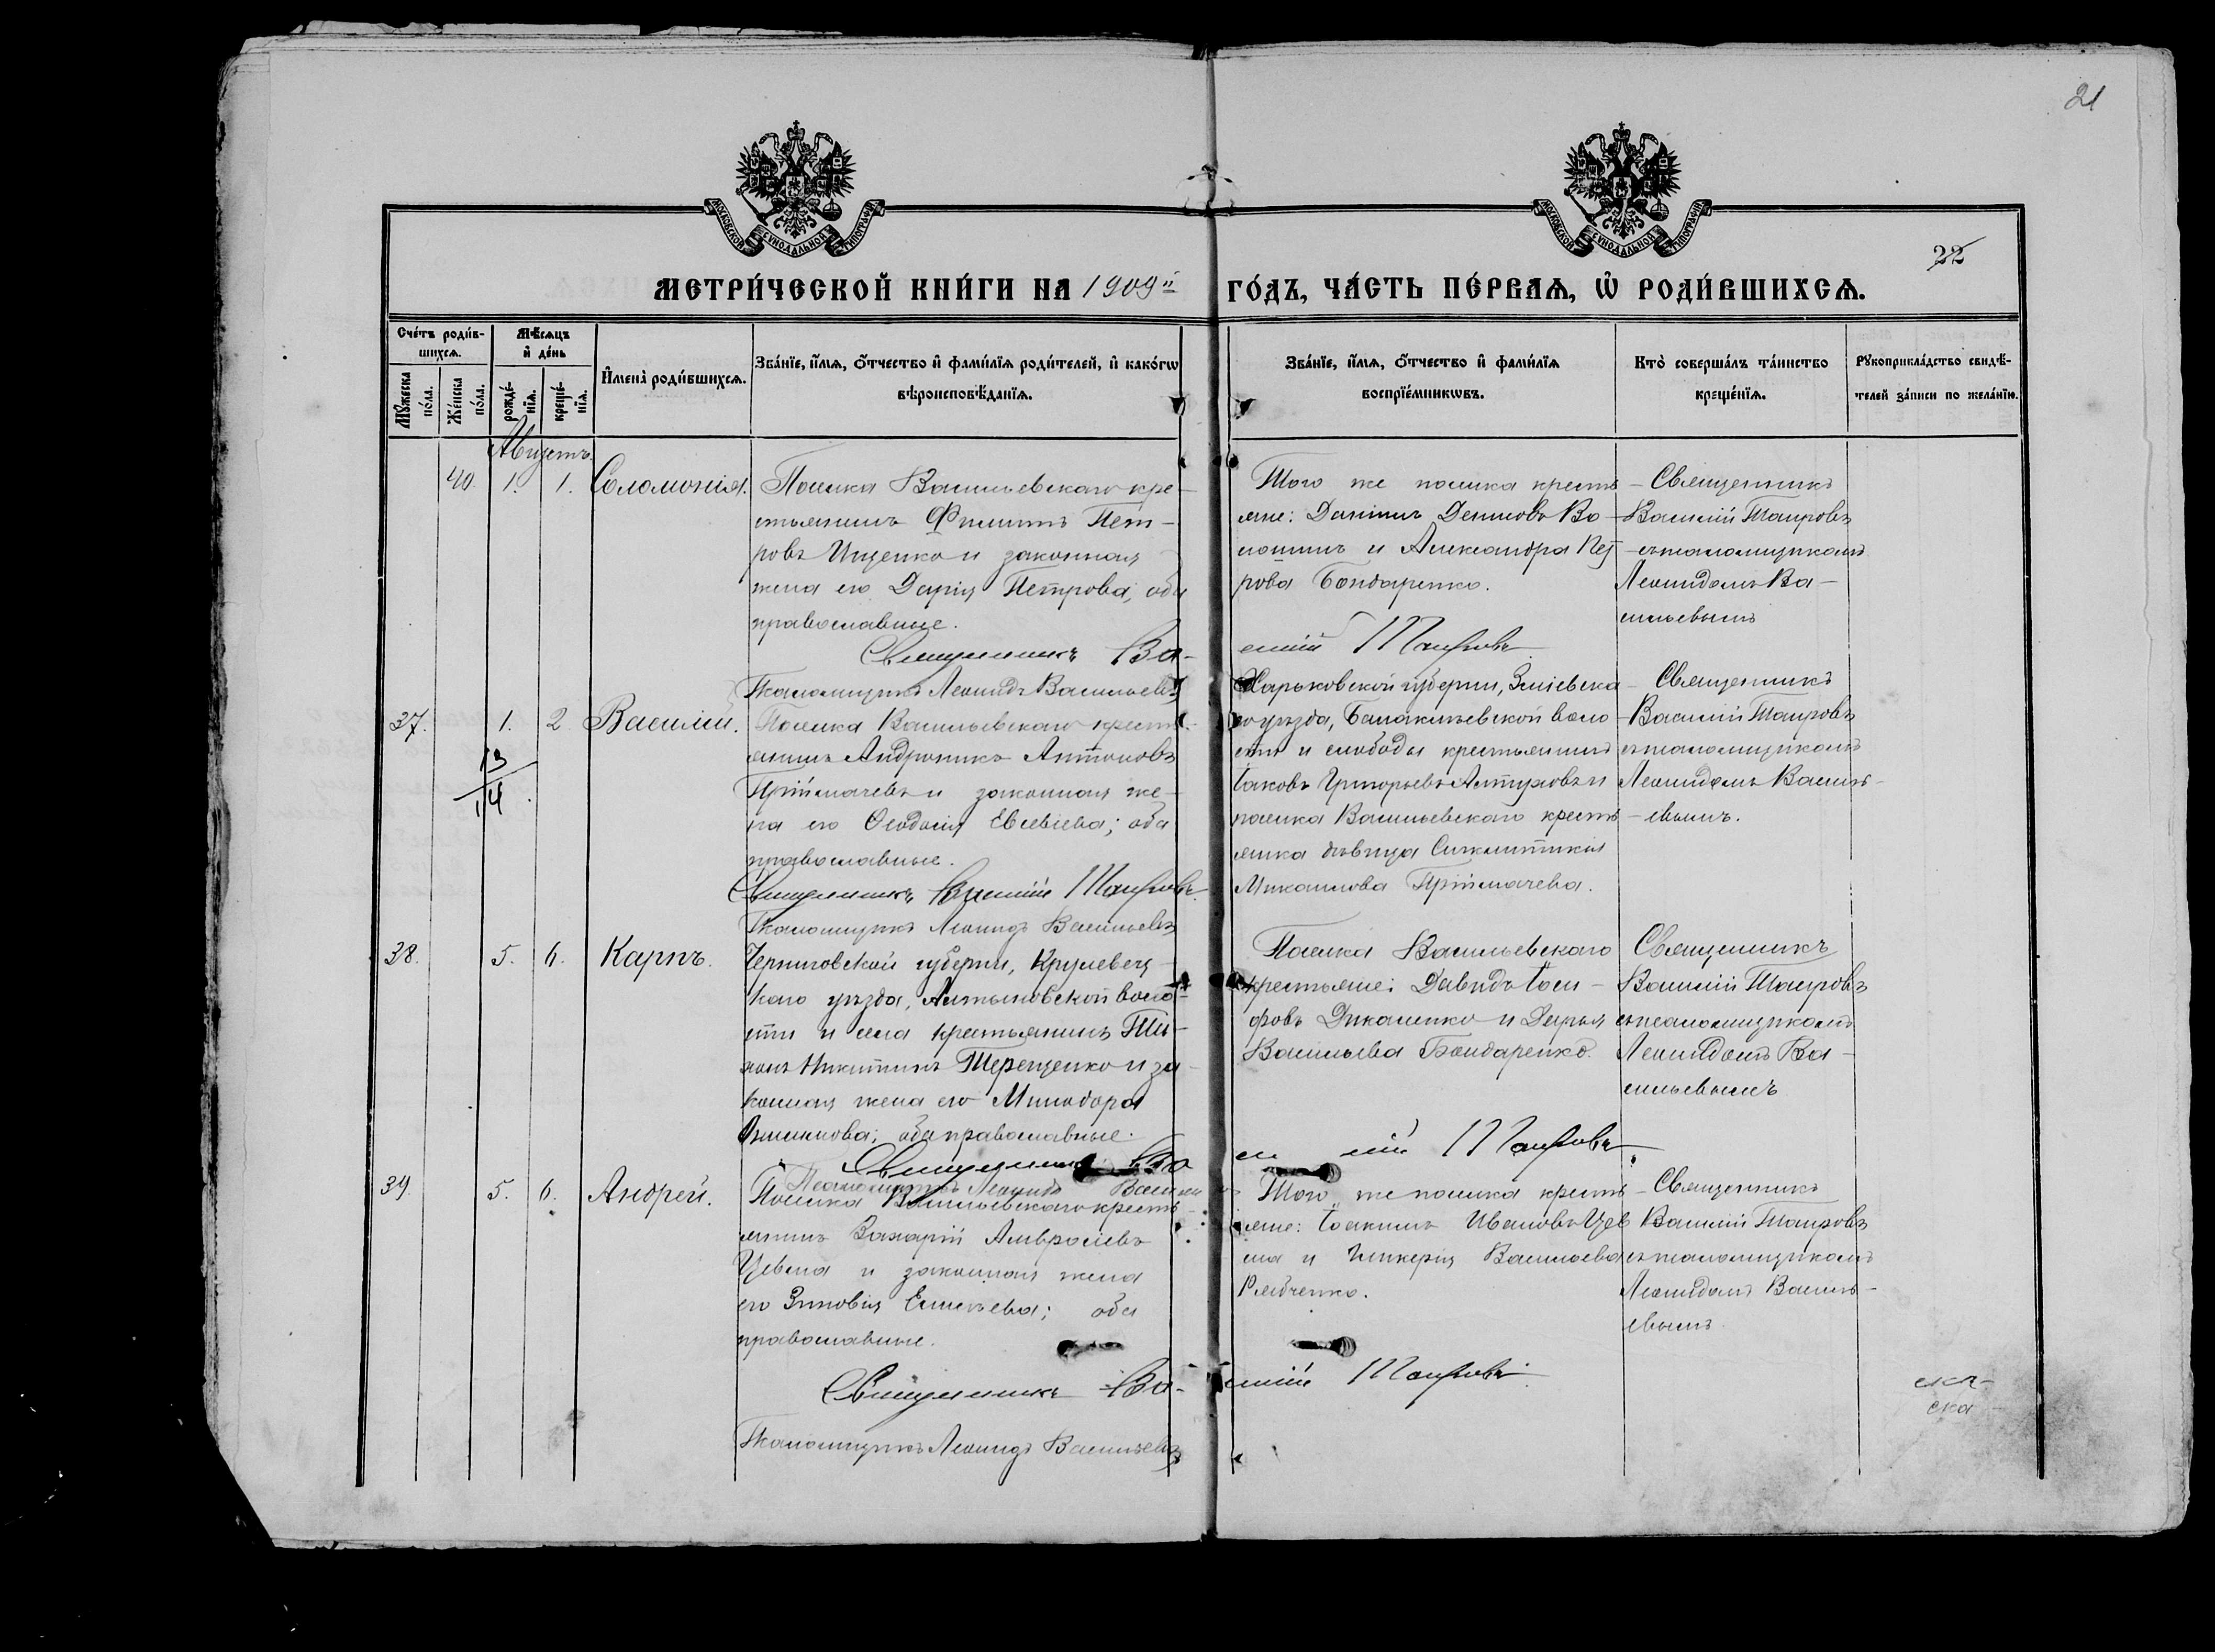 21
МОСКОВСКОЙ СѴНОДАЛЬНОЙ ТИПОГРАФІИ
МОСКОВСКОЙ СѴНОДАЛЬНОЙ ТИПОГРАФІИ
22
МЕТРИ́ЧЕСКОЙ КНИ́ГИ НА 1909й
ГО́ДЪ, ЧА́СТЬ ПЕ́РВАѦ, Ѡ҆ РОДИ́ВШИХСѦ.
Сче́тъ роди́в-
шихсѧ.
Мꙋ́жеска по́ла.
Же́нска по́ла.
Мѣ́сѧцъ
и҆ де́нь
рожде́-
нїѧ.
креще́-
нїѧ.
И҆мена̀ роди́вшихсѧ.
Зва́нїе, и҆́мѧ, ѻ҆́тчество и҆ фами́лїѧ роди́телей, и҆ како́гѡ
вѣроисповѣ́данїѧ.
Зва́нїе, и҆́мѧ, ѻ҆́тчество и҆ фами́лїѧ
воспрїе́мникѡвъ.
Кто̀ соверша́лъ та́инство
креще́нїѧ.
Рꙋкоприкла́дство свидѣ́-
телей за́писи по жела́нїю.
Августъ.
40. 1. 1. Соломонія.
Поселка Васильевскаго кре-
стьянинъ Филиппъ Пет-
ровъ Ищенко и законная
жена его Дарія Петрова, оба
православные.
Священникъ Ва-
Псаломщикъ Леонидъ Васильевъ
Того же поселка кресть-
яне: Даніилъ Денисовъ Во-
лошинъ и Александра Пет
рова Бондаренко.
силій Тапровъ
Священникъ
Василій Тапровъ
съ псаломщикомъ
Леонидомъ Ва-
сильевымъ
37. 1. 2 Василій.
13
14
Поселка Васильевскаго кресть-
янинъ Андроникъ Антоновъ
Пріймачевъ и законная же-
на его Ѳеодосія Евсевіева; оба
православные.
Священникъ Василій Тапровъ
Псаломщикъ Леонидъ Васильевъ
Харьковской губерніи, Зміевска
го уѣзда, Балаклѣевской воло
сти и слободы крестьянинъ
Іаковъ Григорьевъ Алтуховъ и
поселка Васильевскаго кресть-
янка дѣвица Синклитикія
Михаилова Пріймачева.
Священникъ
Василій Тапровъ
съ псаломщикомъ
Леонидомъ Василь-
евымъ.
38. 5. 6. Карпъ.
Черниговской губерніи, Кролевец-
каго уѣзда, Алтыновской воло-
сти и села крестьянинъ Ти-
монъ Никитинъ Терещенко и за-
конная жена его Минодора
оба православные.
Священникъ Ва
Псаломщикъ Леонидъ Васильевъ
Поселка Васильевскаго
крестьяне: Давидъ Іоси-
фовъ Дикаленко и Дарья
Васильева Бондаренко.
силій Тапровъ
Священникъ
Василій Тапровъ
съ псаломщикомъ
Леонидомъ Ва-
сильевымъ
39. 5. 6. Андрей.
Поселка Васильевскаго кресть-
янинъ Захарій Амвросіевъ
Цевма и законная жена
его Зиновія Емельева; оба
православные.
Священникъ Ва-
Псаломщикъ Леонидъ Васильевъ
Того же поселка кресть-
яне: Іоакимъ Ивановъ Цев
ма и Гликерія Васильева
Рябченко.
силій Тапровъ
Священникъ
Василій Тапровъ
съ псаломщикомъ
Леонидомъ Василь-
евымъ
ска